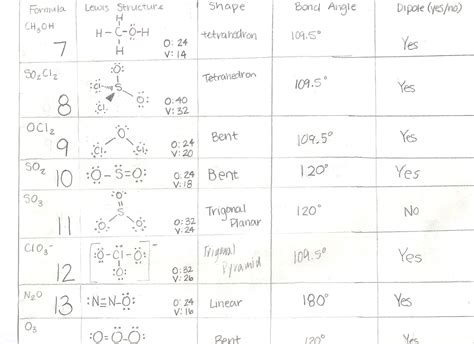 Formula Lewis Structure Shape Bond Angle Dipole (yes/no)
CH3OH
7
H
H-C-Ö-H
H
O: 24
V: 14
tetrahedron 109.5° Yes
SO2Cl2
8
O
Cl S O
Cl
O: 40
V: 32
Tetrahedron 109.5° Yes
OCl2
9
O
Cl Cl
O: 24
V: 20
Bent 109.5° Yes
SO2
10
O-S=O
O: 24
V: 18
Bent 120° Yes
SO3
11
O
S
O O
O: 32
V: 24
Trigonal
Planar
120° No
ClO3-
12
[O-Cl-O]-
O
O: 32
V: 26
Trigonal
Pyramid
109.5° Yes
N2O
13
:N≡N-O:
O: 24
V: 16
Linear 180° Yes
O3
:O=O-O:
O: 24
Bent 120° Yes